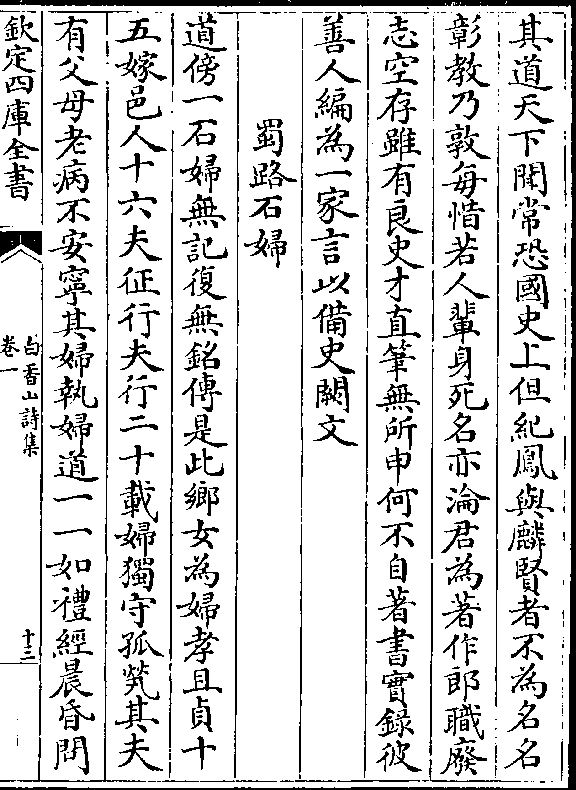 其道天下聞常恐國史上但紀鳳與麟賢者不為名名
彰教乃敦每惜若人輩身死名亦淪君為著作郎職廢
志空存雖有良史才直筆無所申何不自著書實錄彼
善人編為一家言以備史闕文
蜀路石婦
道傍一石婦無記復無銘傳是此鄉女為婦孝且貞十
五嫁邑人十六夫征行夫行二十載婦獨守孤煢其夫
有父母老病不安寧其婦執婦道一一如禮經晨昏問
欽定四庫全書
白香山詩集
卷一
十三